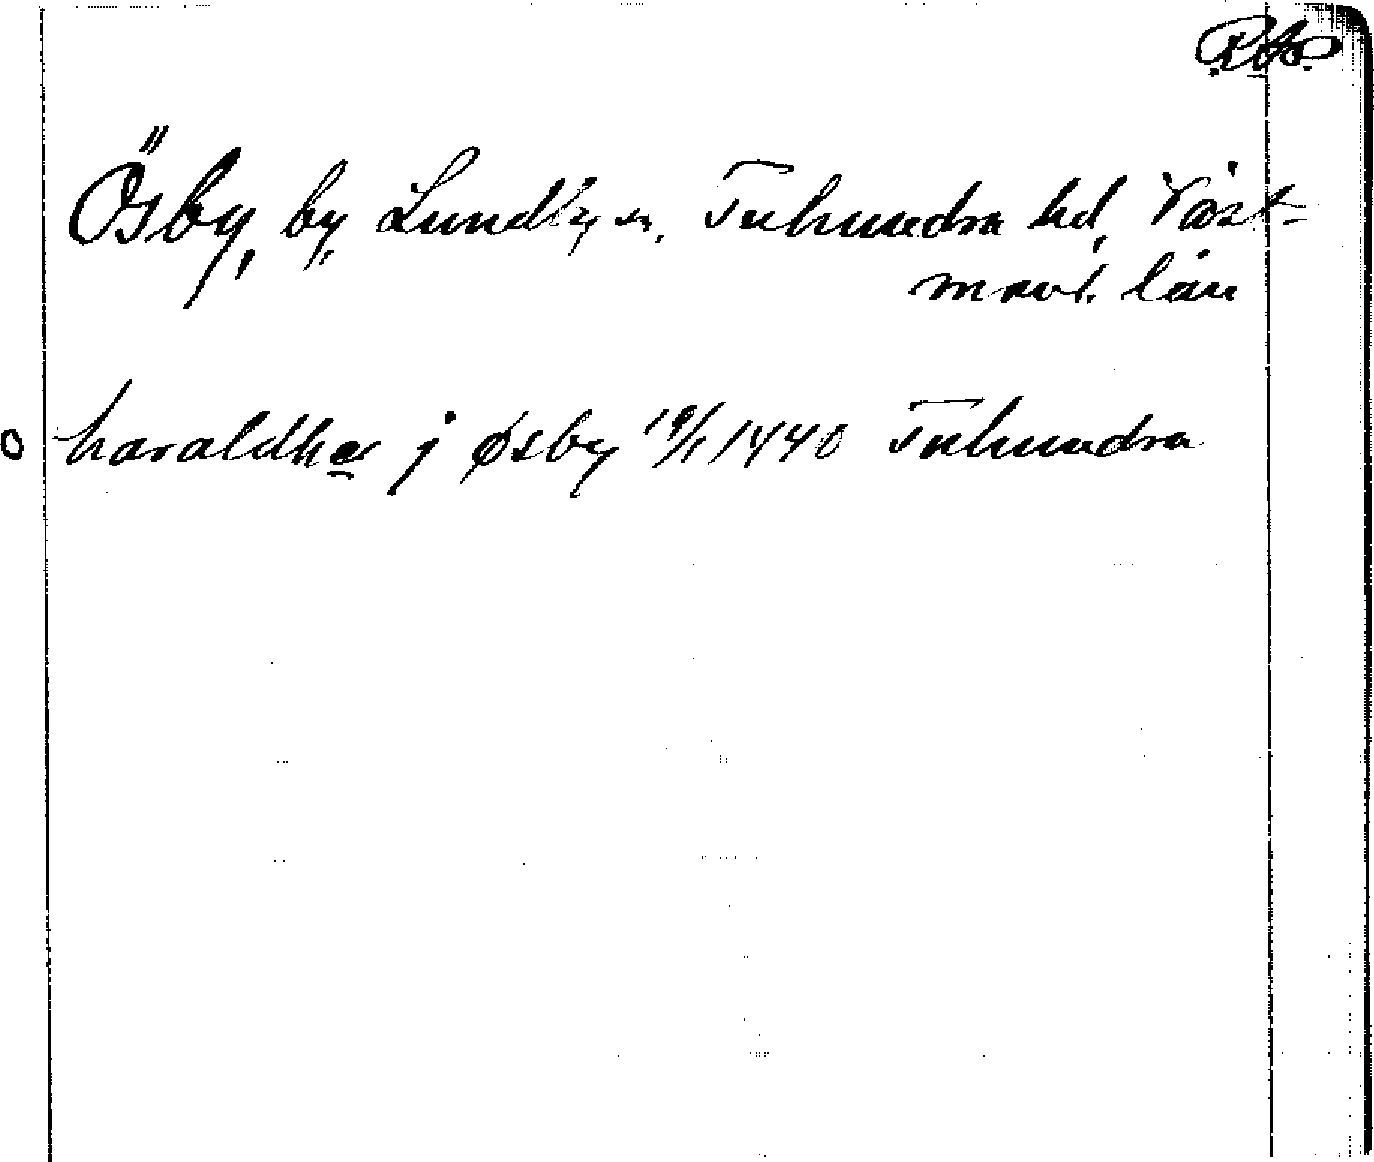 Ösby, by, Lundby sn, Tuhundra hd, Väst-
manl. län
haraldher j øsby 19/1 1440 Tuhundra